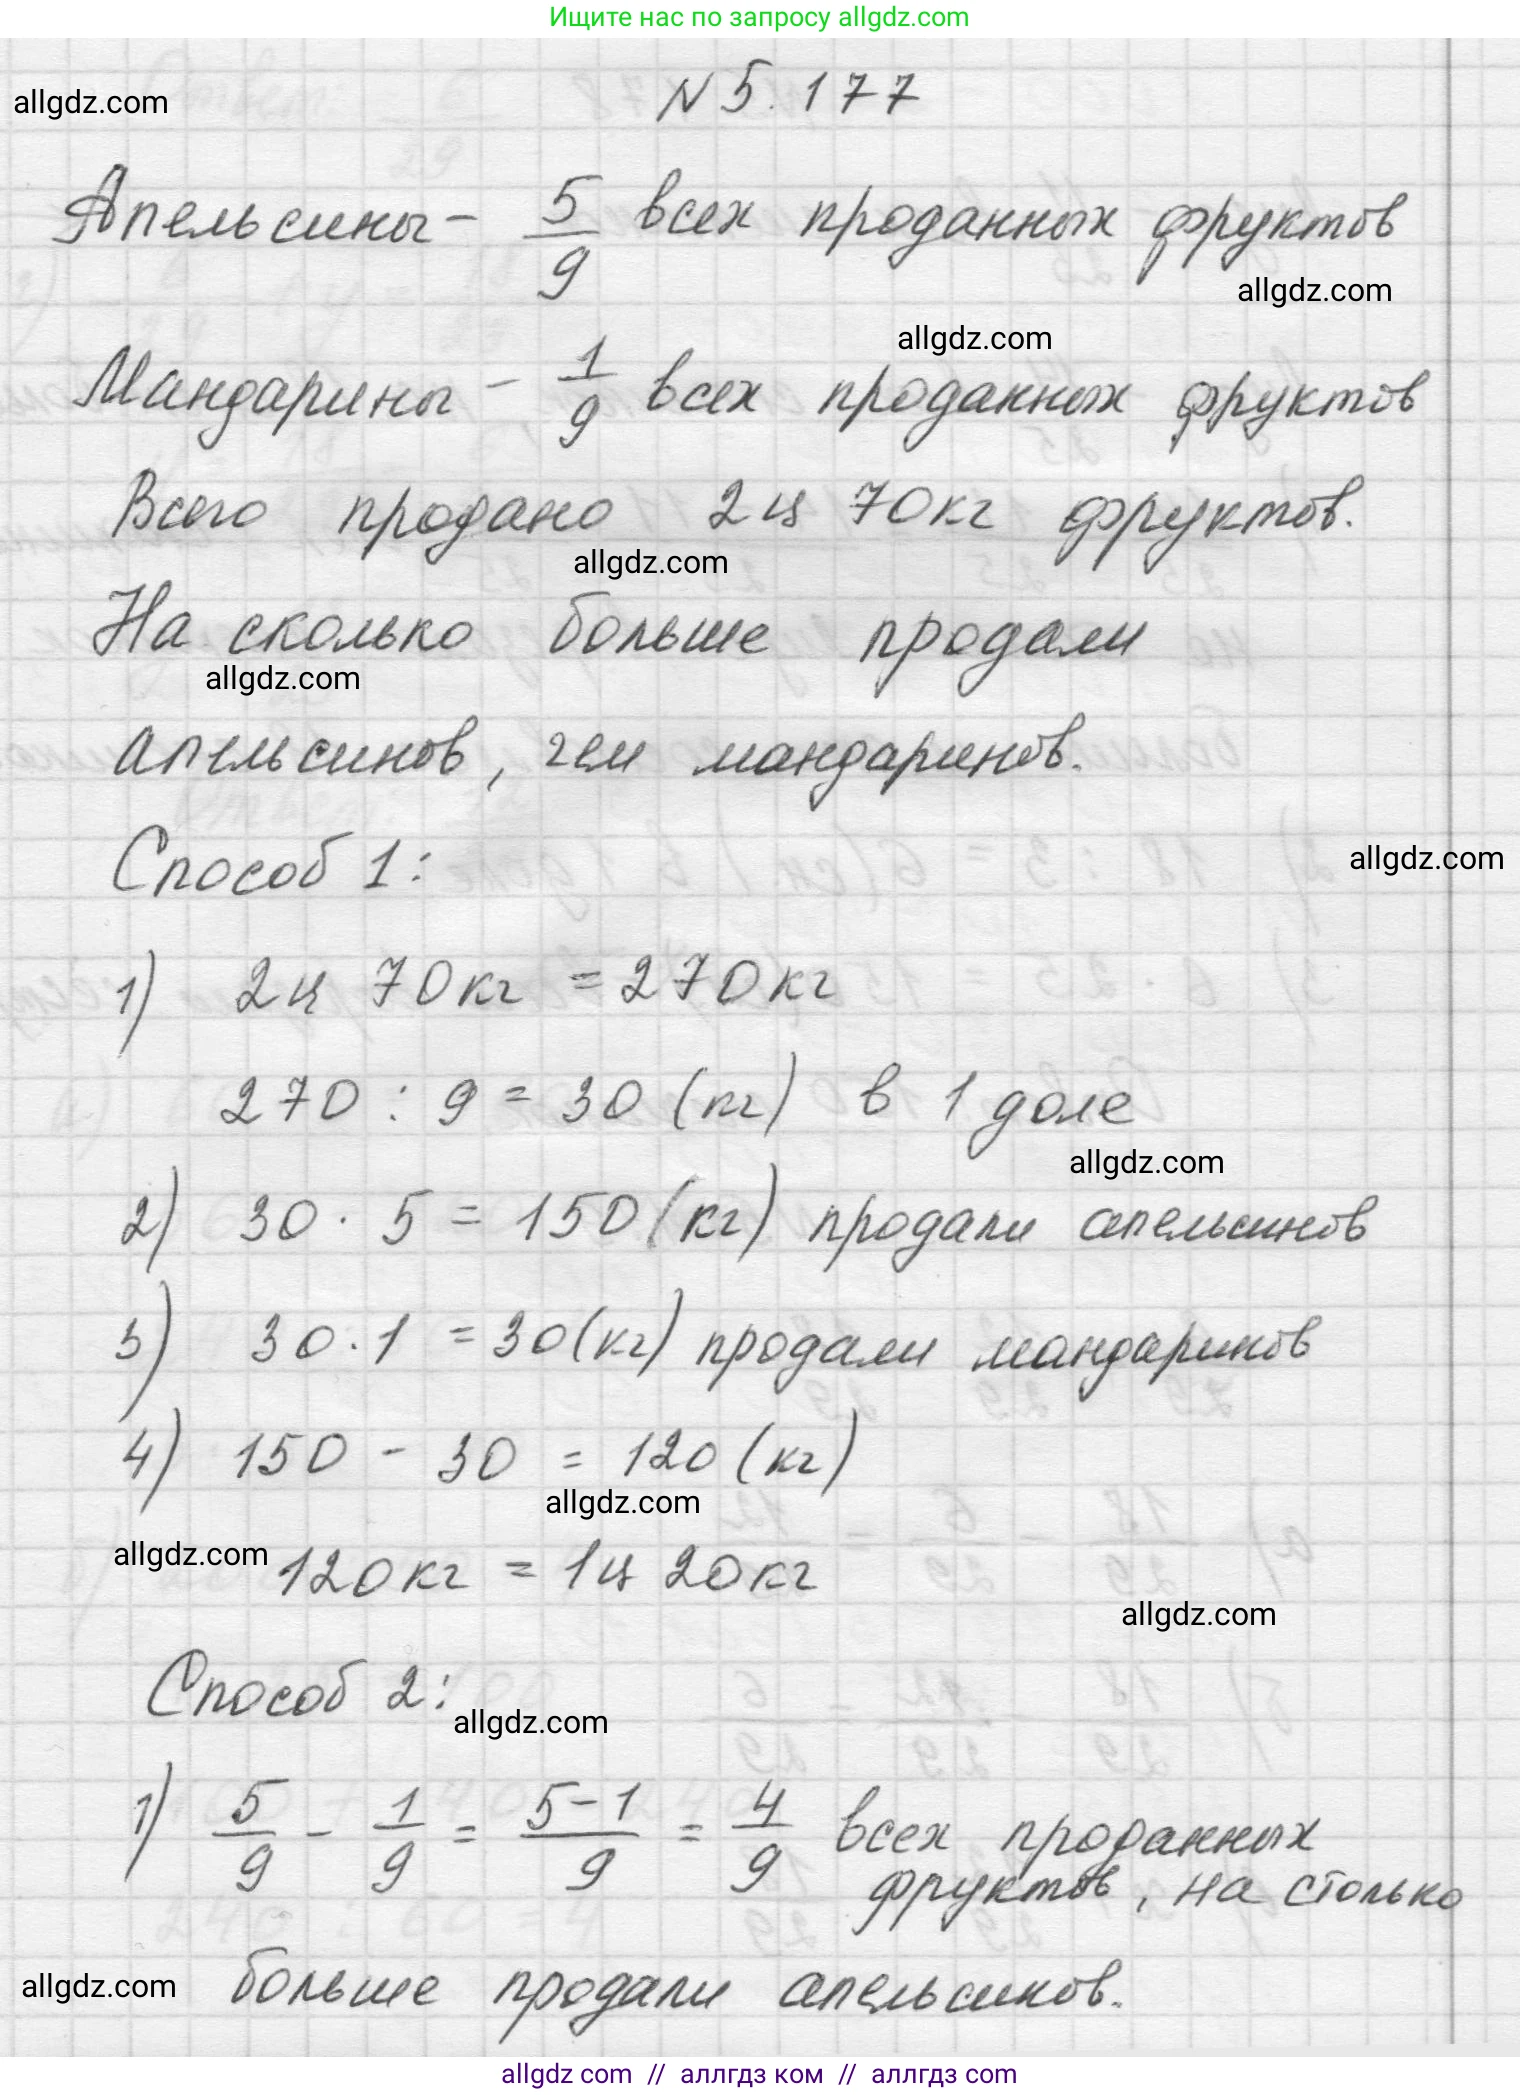 Ищите нас по запросу allgdz.com
allgdz.com
N 5.177
Апельсины - 5/9 всех проданных фруктов
allgdz.com
allgdz.com
Мандарины - 1/9 всех проданных фруктов
Всего продано 2ц 70кг фруктов.
allgdz.com
На сколько больше продали
allgdz.com
апельсинов, чем мандаринов.
Способ 1:
allgdz.com
1) 2ц 70кг = 270кг
270 : 9 = 30 (кг) в 1 доле
allgdz.com
2) 30 · 5 = 150 (кг) продали апельсинов
3) 30 · 1 = 30 (кг) продали мандаринов
4) 150 - 30 = 120 (кг)
allgdz.com
allgdz.com
120кг = 1ц 20кг
allgdz.com
Способ 2:
allgdz.com
1) 5/9 - 1/9 = (5-1)/9 = 4/9 всех проданных
фруктов, на столько
allgdz.com
больше продали апельсинов.
allgdz.com // аллгдз ком // аллгдз com